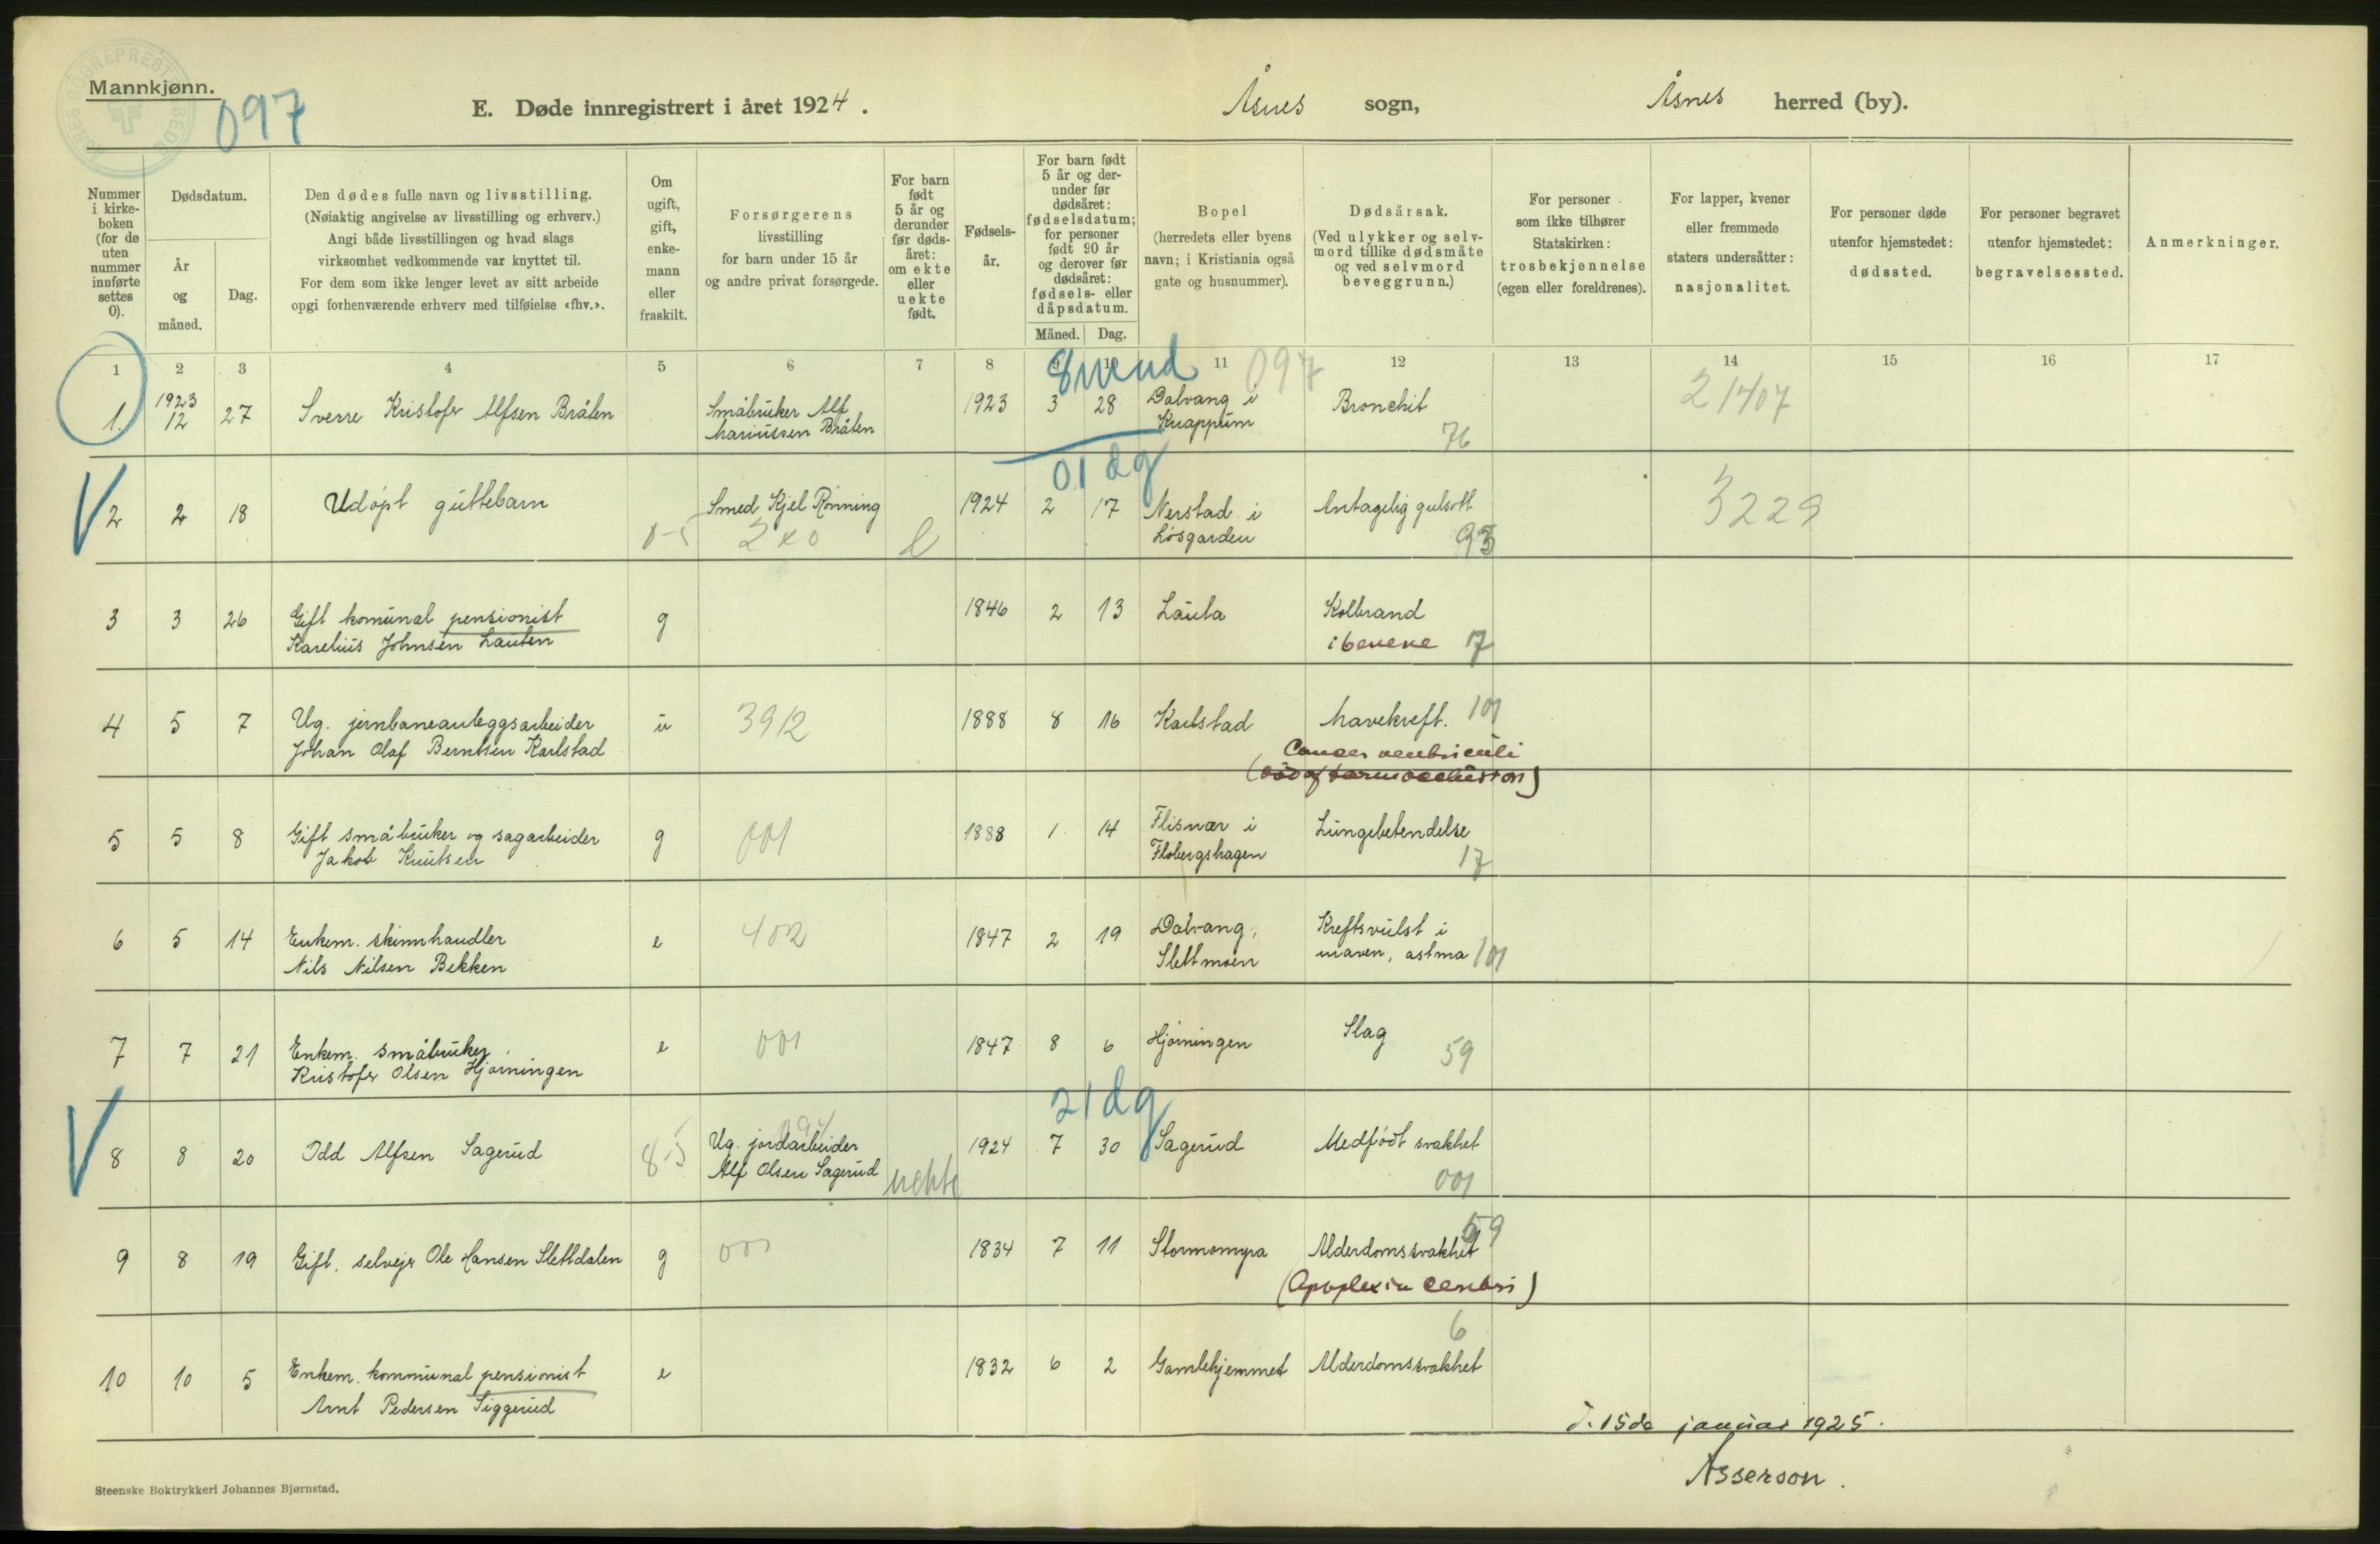 Mannkjønn.
097
E. Døde innregistrert i året 1924.
Åsnes sogn,
Åsnes herred (by).
Nummer i kirkeboken (for de uten nummer innførte settes 0).
Dødsdatum.
År og måned.
Dag.
Den dødes fulle navn og livsstilling.
(Nøiaktig angivelse av livsstilling og erhverv.)
Angi både livsstillingen og hvad slags
virksomhet vedkommende var knyttet til.
For dem som ikke lenger levet av sitt arbeide
opgi forhenværende erhverv med tilføielse «fhv.».
Om ugift, gift, enkemann eller fraskilt.
Forsørgerens
livsstilling
for barn under 15 år
og andre privat forsørgede.
For barn født 5 år og derunder før dødsåret: om ekte eller uekte født.
Fødselsår.
For barn født 5 år og derunder før dødsåret: fødselsdatum; for personer født 90 år og derover før dødsåret: fødsels- eller dåpsdatum.
Måned. Dag.
Bopel
(herredets eller byens
navn; i Kristiania også
gate og husnummer).
Dødsårsak.
(Ved ulykker og selvmord tillike dødsmåte
og ved selvmord
beveggrunn.)
For personer
som ikke tilhører
Statskirken:
trosbekjennelse
(egen eller foreldrenes).
For lapper, kvener
eller fremmede
staters undersåtter:
nasjonalitet.
For personer døde
utenfor hjemstedet:
dødssted.
For personer begravet
utenfor hjemstedet:
begravelsessted.
Anmerkninger.
1 2 3 4 5 6 7 8 9 10 11 12 13 14 15 16 17
8 mnd 097
1. 1923 12 27 Sverre Kristofer Alfsen Bråten Småbruker Alf Mariussen Bråten 1923 3 28 Dalvang i Knappum Bronchit 76 21407
01 dg
2 2 18 Udøpt guttebarn Smed Kjel Rønning 1924 2 17 Nerstad i Løsgarden Antagelig gulsott 93 3229
3 3 26 Gift komunal pensionist Karelius Johnsen Lauten g 1846 2 13 Lauta Kolbrand i benene 17
4 5 7 Ug. jernbaneanleggsarbeider Johan Olaf Berntsen Karlstad u 3912 1888 8 16 Karlstad Mavekreft. 101
Cancer ventriculi
5 5 8 Gift småbruker og sagarbeider Jakob Knutsen g 001 1888 1 14 Flisnær i Flobergshagen Lungebetendelse 17
6 5 14 Enkem. skinnhandler Nils Nilsen Bekken e 402 1847 2 19 Dalvang, Slettmoen Kreftsvulst i maven, astma 101
7 7 21 Enkem. småbruker Kristofer Olsen Hjørningen e 001 1847 8 6 Hjørningen Slag 59
21 dg
8 8 20 Odd Alfsen Sagerud Ug. jordarbeider Alf Olsen Sagerud uekte 1924 7 30 Sagerud Medfødt svakhet 001
9 8 19 Gift, selvejer Ole Hansen Slettdalen g 001 1834 7 11 Stormomyra Alderdomssvakhet 59
(Apoplexia cerebri)
10 10 5 Enkem. kommunal pensionist Arnt Pedersen Siggerud e 1832 6 2 Gamlehjemmet Alderdomssvakhet 6
d. 15de januar 1925.
Asserson.
Steenske Boktrykkeri Johannes Bjørnstad.